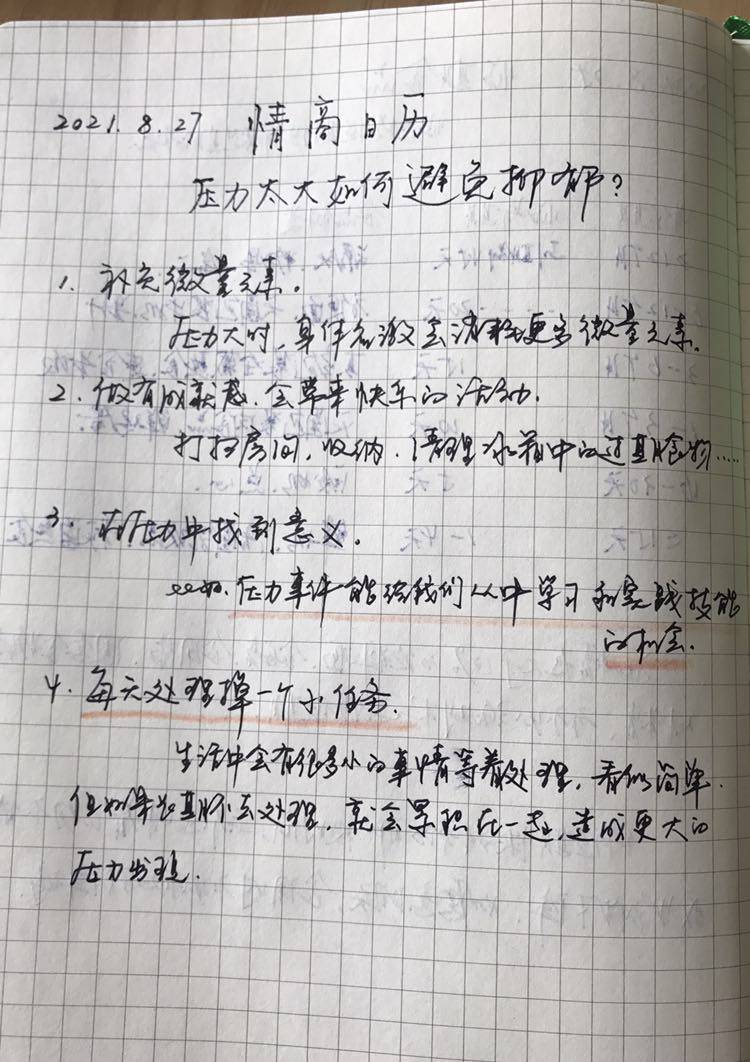 2021.8.27 情商日历
压力太大如何避免抑郁?
1. 补充微量元素。
压力大时,身体会消耗更多微量元素。
2. 做有成就感、会带来快乐的活动。
打扫房间、收纳、清理冰箱中的过期食物……
3. 在压力中找到意义。
比如,压力事件能给我们从中学习和实践技能
的机会.
4. 每天处理掉一个小任务.
生活中会有很多小的事情等着处理,看似简单.
但如果长期不去处理,就会累积在一起,造成更大的
压力出现.